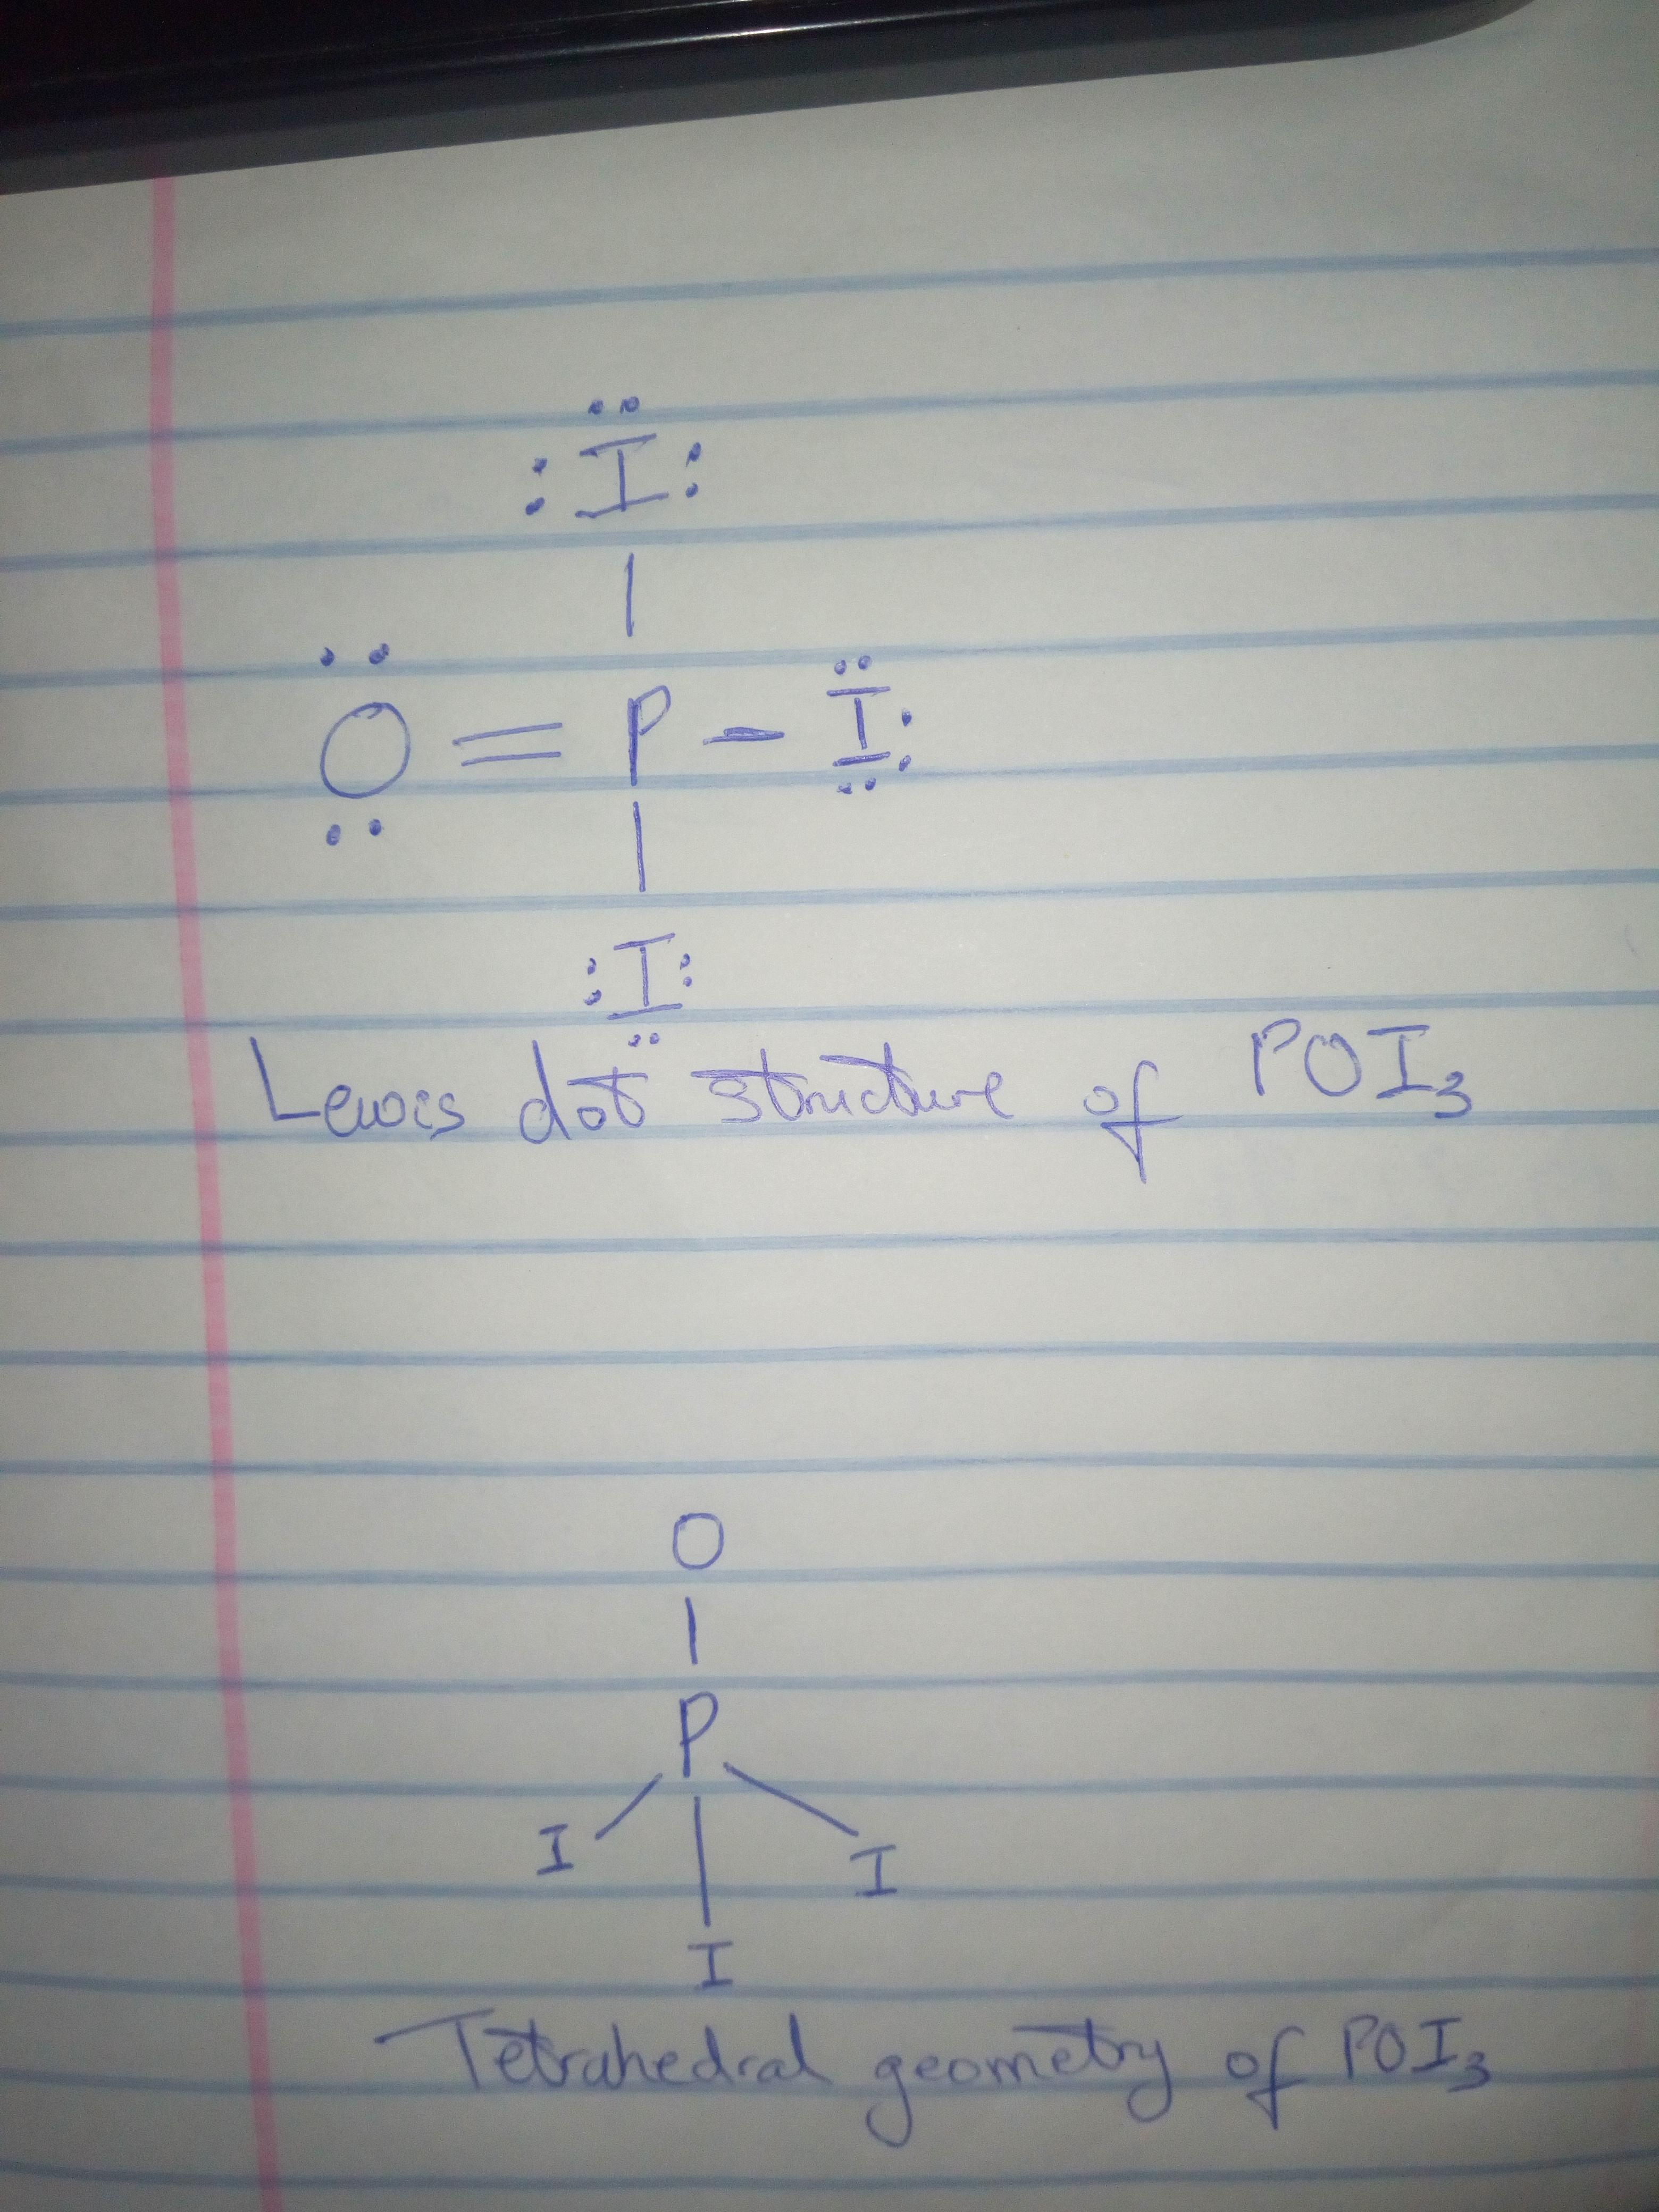 I
O = P - I
I
Lewis dot structure of POI₃
O
P
I I
I
Tetrahedral geometry of POI₃